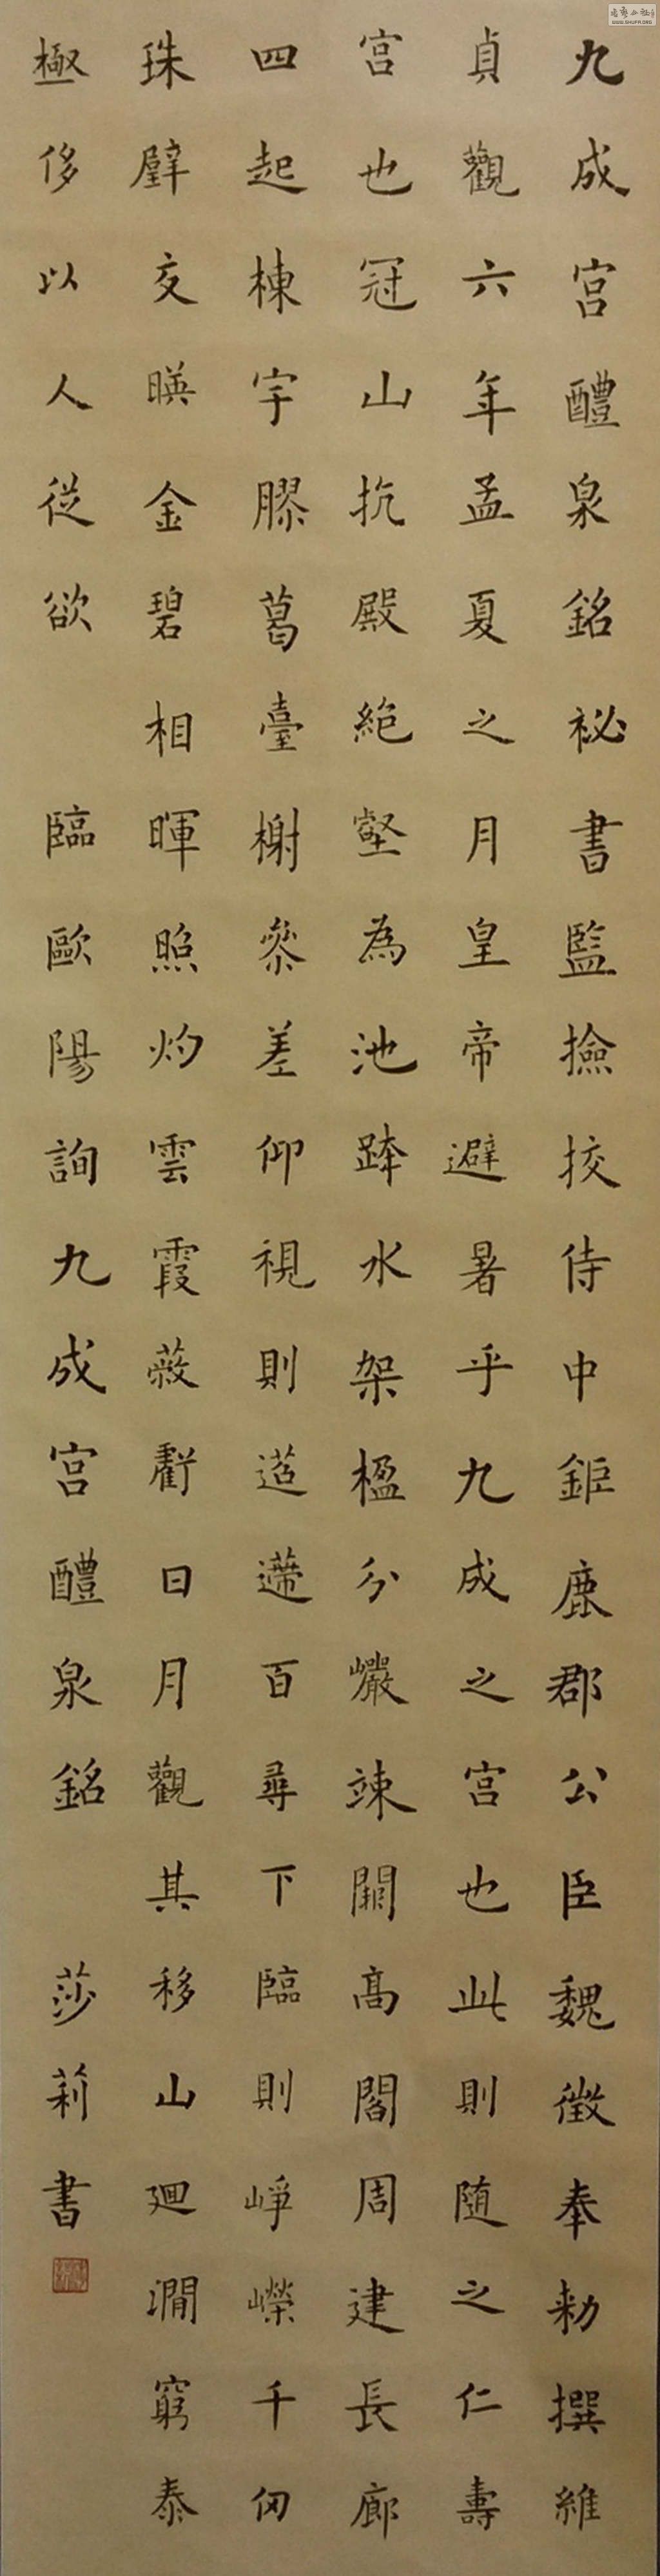 九成宮醴泉銘祕書監撿挍侍中鉅鹿郡公臣魏徵奉勑撰維
貞觀六年孟夏之月皇帝避暑乎九成之宮也此則随之仁壽
宮也冠山抗殿絶壑為池跨水架楹分巖竦闕高閣周建長廊
四起棟宇膠葛臺榭叅差仰視則迢遰百尋下臨則崢嶸千仞
珠璧交暎金碧相暉照灼雲霞蔽虧日月觀其移山迴澗窮泰
極侈以人從欲 臨歐陽詢九成宮醴泉銘 莎莉書
WWW.SHUFA.ORG